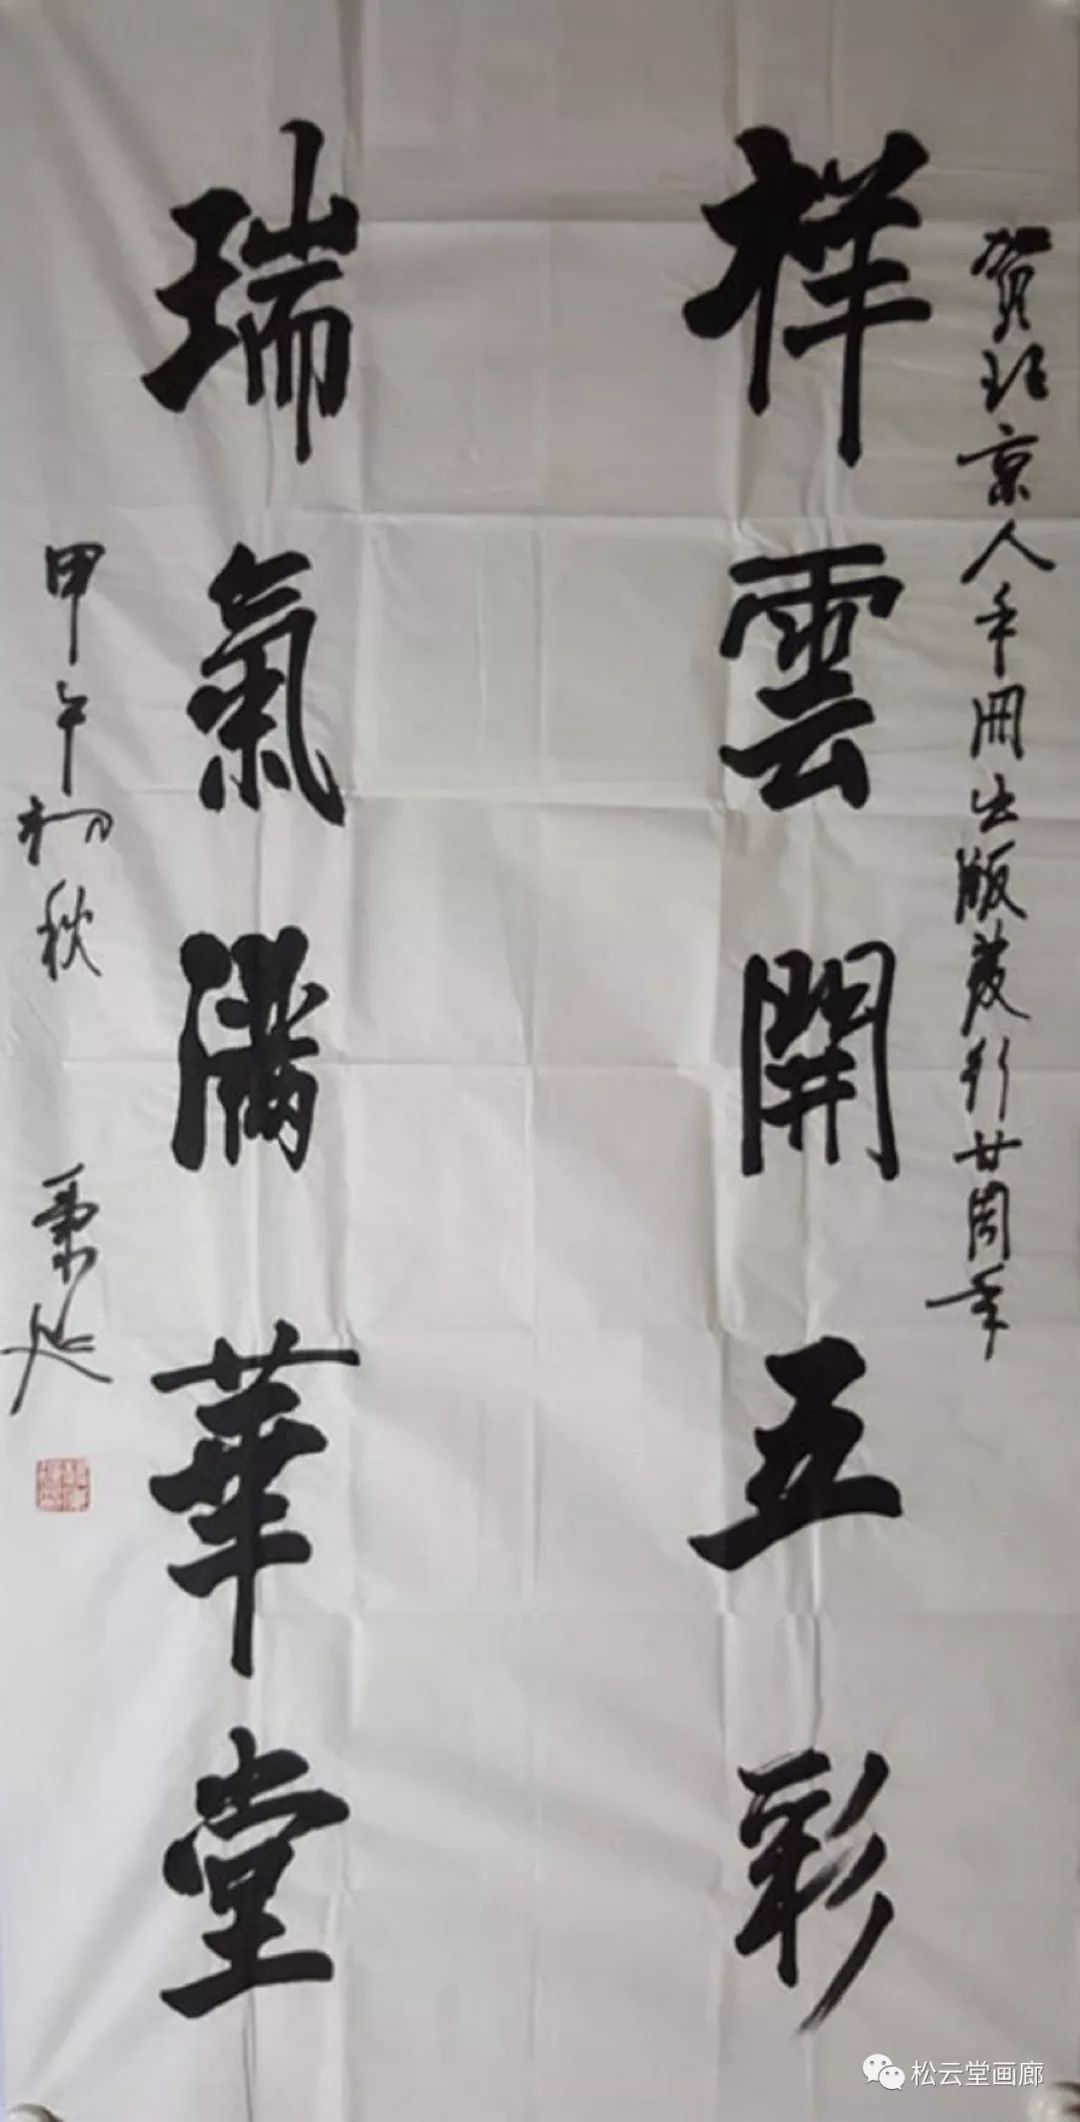 賀北京人手冊出版發行廿周年
祥雲開五彩
瑞氣滿華堂
甲午初秋
松云堂画廊